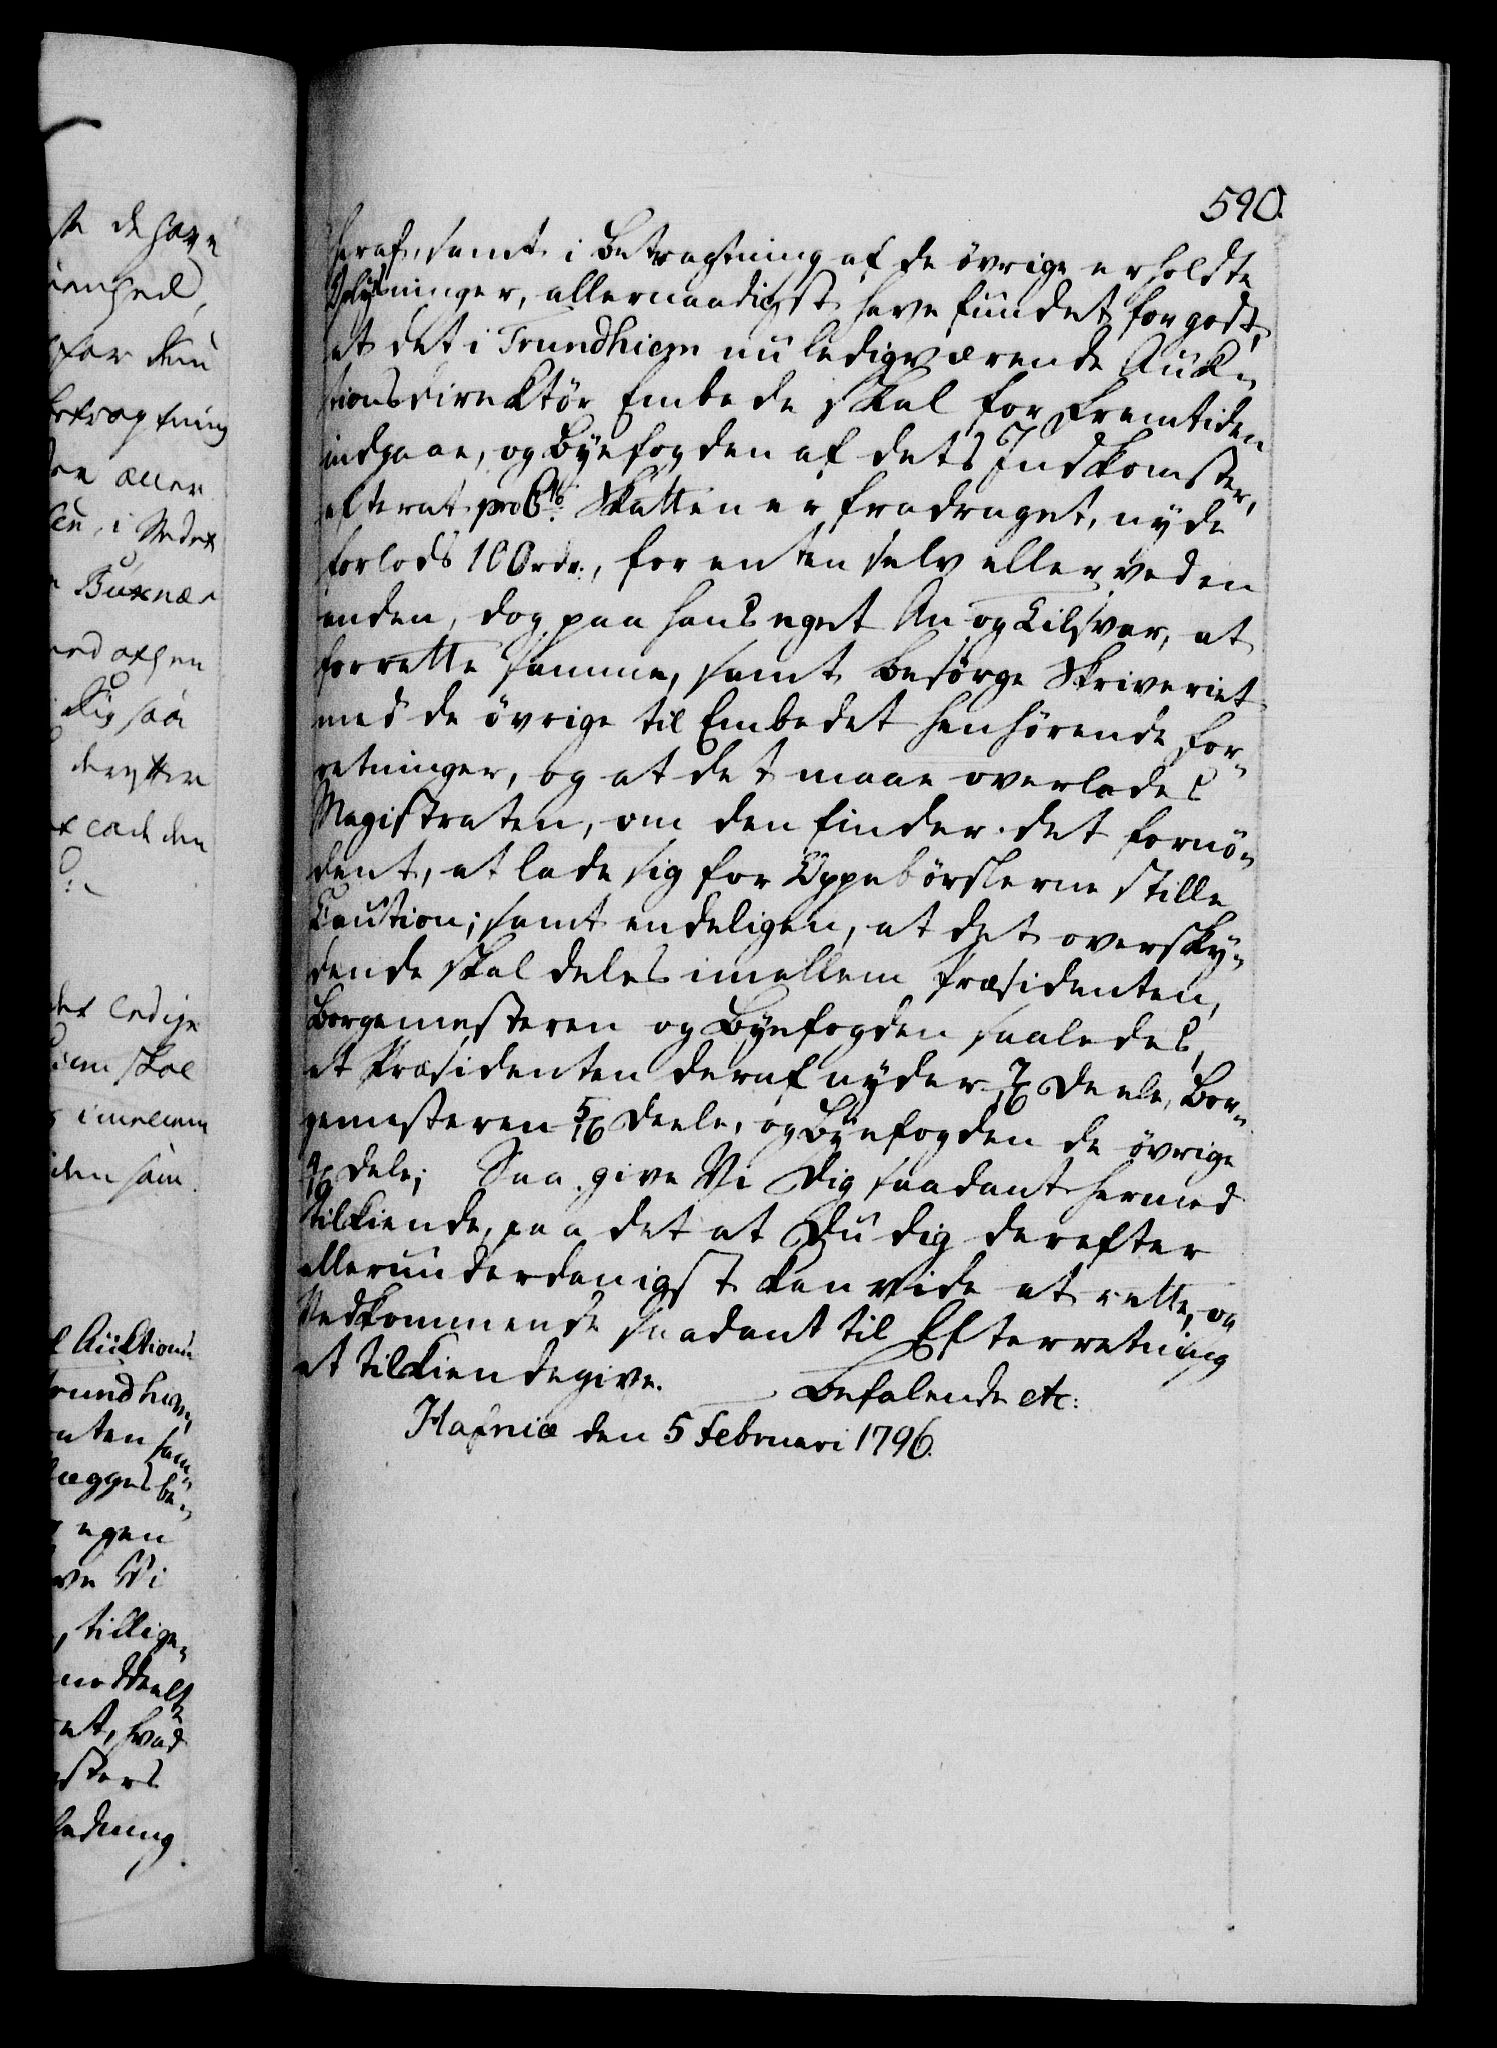 590.
heraf, samt i Betragtning af de øvrige erholdte
Oplysninger, allernaadigst have fundet for godt,
at det i Trundhiem nu ledigværende Auk-
tionsdirektør Embede skal for Fremtiden
indgaae, og Byefogden af dets Indkomster,
efterat proCto Skatten er fradraget, nyde
forlods 100rdr., for enten selv eller ved en
anden, dog paa hans eget An og Tilsvar, at
forrette samme, samt besørge Skriveriet
med de øvrige til Embedet henhørende For-
retninger, og at det maae overlades
Magistraten, om den finder det fornø-
dent, at lade sig for Oppebørslerne stille
Caution; samt endeligen, at det oversky-
dende skal deles imellem Præsidenten,
Borgemesteren og Byefogden saaledes,
at Præsidenten deraf nyder 7/16 Deele, Bor-
gemesteren 5/16 Deele, og Byefogden de øvrige
4/16 dele; Saa give Vi Dig saadant hermed
tilkiende, paa det at Du dig derefter
allerunderdanigst kan vide at rette, og
Vedkommende saadant til Efterretning
at tilkiendegive. Befalende etc:
Hafniæ den 5 Februari 1796.